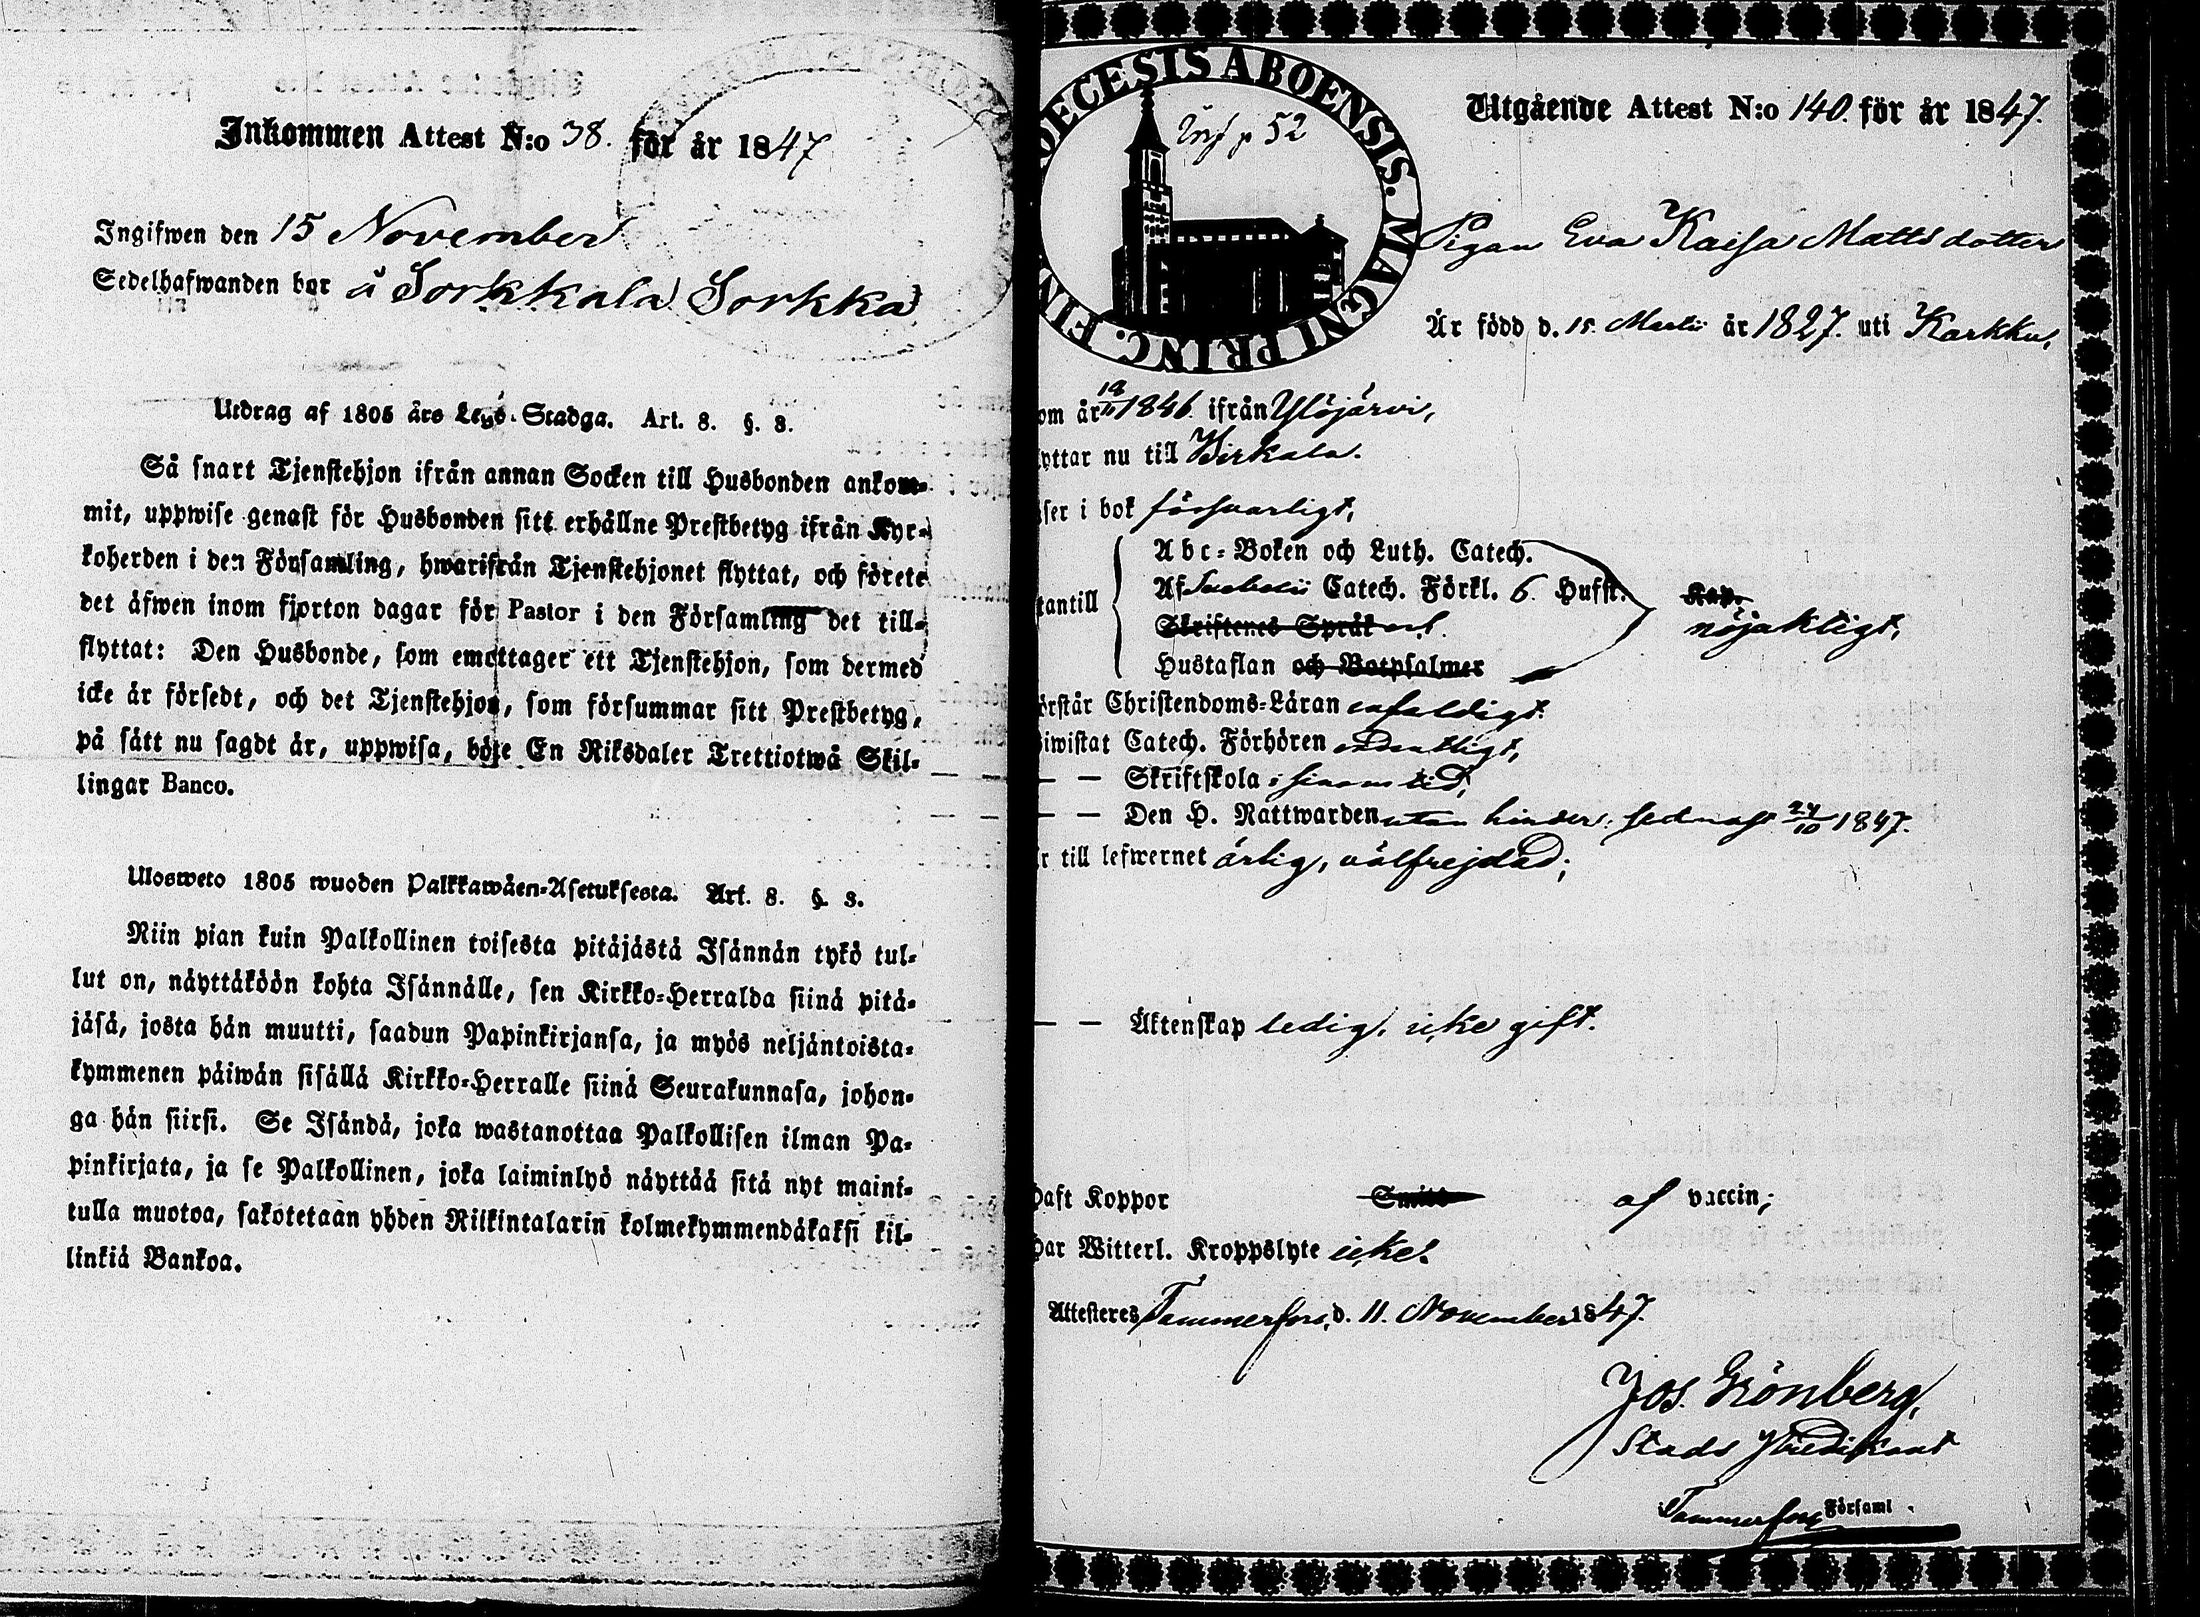 Inkommen Attest N:o 38. för år 1847
Ingifwen den 15 November
Sedelhafwanden bor å Sorkkala Sorkka
Utdrag af 1805 års Lego-Stadga. Art. 8. §. 3.
Så snart Tjenstehjon ifrån annan Socken till Husbonden ankom-
mit, uppwise genast för Husbonden sitt erhållne Prestbetyg ifrån Kyr-
koherden i den Församling, hwarifrån Tjenstehjonet flyttat, och förete
det äfwen inom fjorton dagar för Pastor i den Församling det till-
flyttat: Den Husbonde, som emottager ett Tjenstehjon, som dermed
icke är försedt, och det Tjenstehjon, som försummar sitt Prestbetyg,
på sätt nu sagdt är, uppwisa, böte En Riksdaler Trettiotwå Skil-
lingar Banco.
Ulosweto 1805 wuoden Palkkawäen-Asetuksesta. Art. 8. §. 3.
Niin pian kuin Palkollinen toisesta pitäjästä Isännän tykö tul-
lut on, näyttäköön kohta Isännälle, sen Kirkko-Herralda siinä pitä-
jäsä, josta hän muutti, saadun Papinkirjansa, ja myös neljäntoista-
kymmenen päiwän sisällä Kirkko-Herralle siinä Seurakunnasa, johon-
ga hän siirsi. Se Isändä, joka wastanottaa Palkollisen ilman Pa-
pinkirjata, ja se Palkollinen, joka laiminlyö näyttää sitä nyt maini-
tulla muotoa, sakotetaan yhden Riikintalarin kolmekymmendäkaksi kil-
linkiä Bankoa.
OECESIS ABOENSIS. MAGNI PRINC. FIN
p 52
Utgående Attest N:o 140. för år 1847.
Pigan Eva Kaisa Mattsdotter
Är född d. 15. Martii år 1827. uti Karkku,
om år 1846. ifrån Ylöjärvi,
yttar nu till Birkala.
ser i bok försvarligt,
tantill
Abc-Boken och Luth. Catech.
Af Svebelii Catech. Förkl. 6. Hufst.
Skriftenes Språk
Hustaflan och Botpsalmer
nöjaktigt,
örstår Christendoms-Läran enfaldigt.
iwistat Catech. Förhören ordentligt,
— — Skriftskola i sinom tid,
— — Den H. Nattwarden utan hinder, sednast 24/10 1847.
r till lefwernet ärlig, välfrejdad;
— — Äktenskap ledig, icke gift.
haft Koppor af vaccin;
har Witterl. Kroppslyte icke.
Attesteres Tammerfors, d. 11. November 1847.
Jos. Grönberg,
Stads Predikant
Tammerfors Församl.